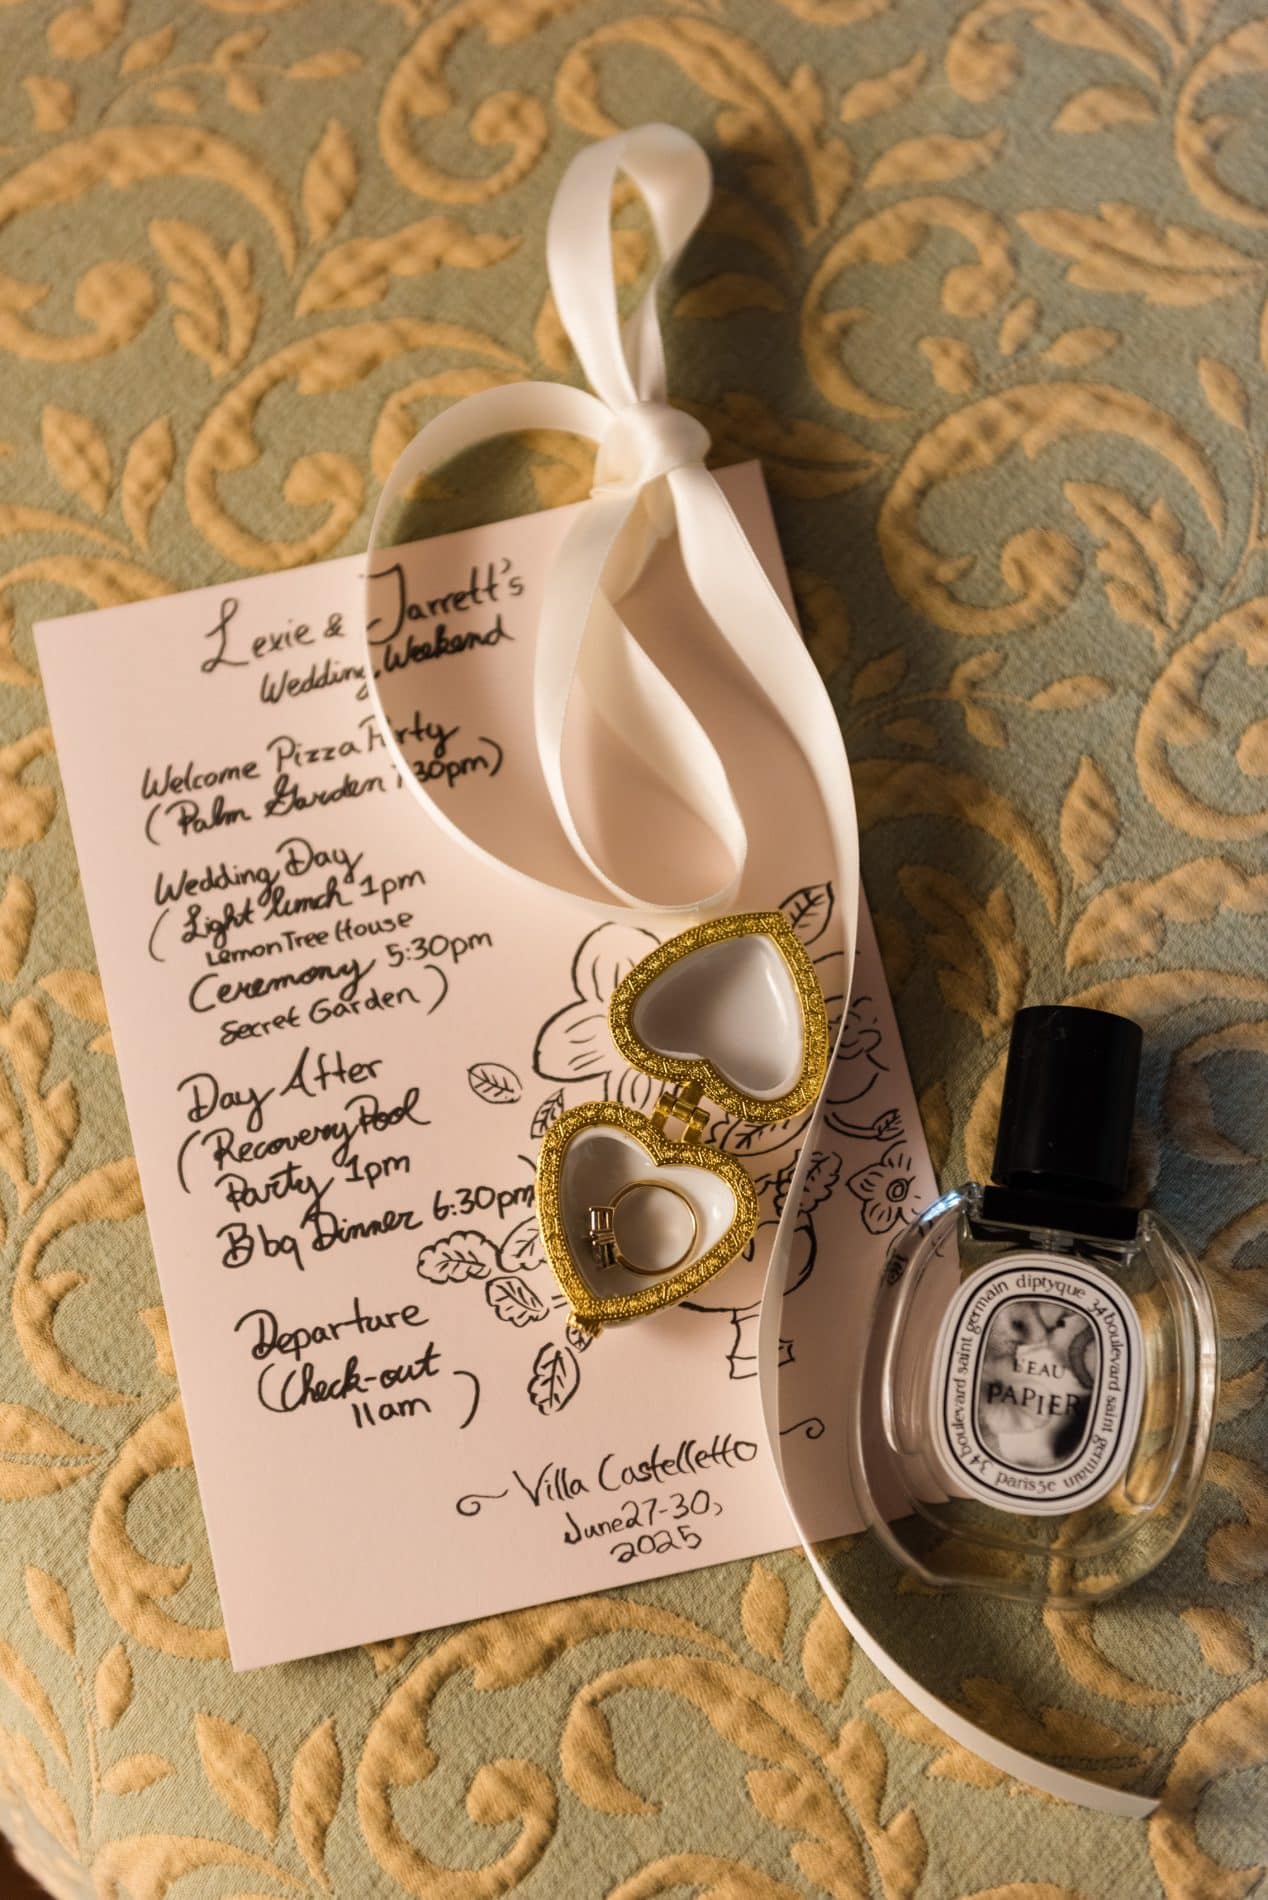 Lexie & Jarrett's
Wedding Weekend
Welcome Pizza Party
(Palm Garden 7:30pm)
Wedding Day
(Light lunch 1pm
Lemon Tree House
Ceremony 5:30pm
Secret Garden)
Day After
(Recovery Pool
Party 1pm
Bbq Dinner 6:30pm
Departure
(Check-out
11am)
Villa Castelletto
June 27-30,
2025
diptyque 34 boulevard saint germain
L'EAU
PAPIER
34 boulevard saint germain
paris 5e